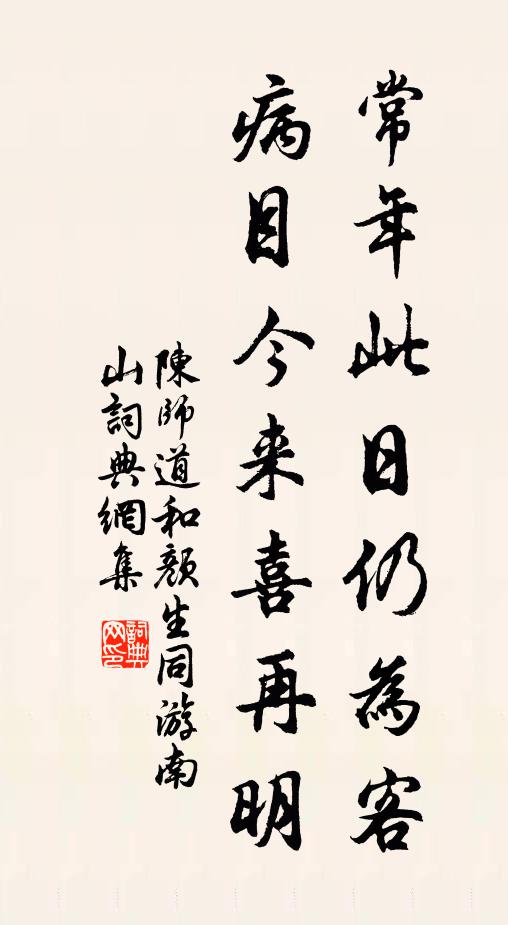 常年此日仍為客
病目今来喜再明
陳師道和顏生同游南
山詞典網集
詞典
网印